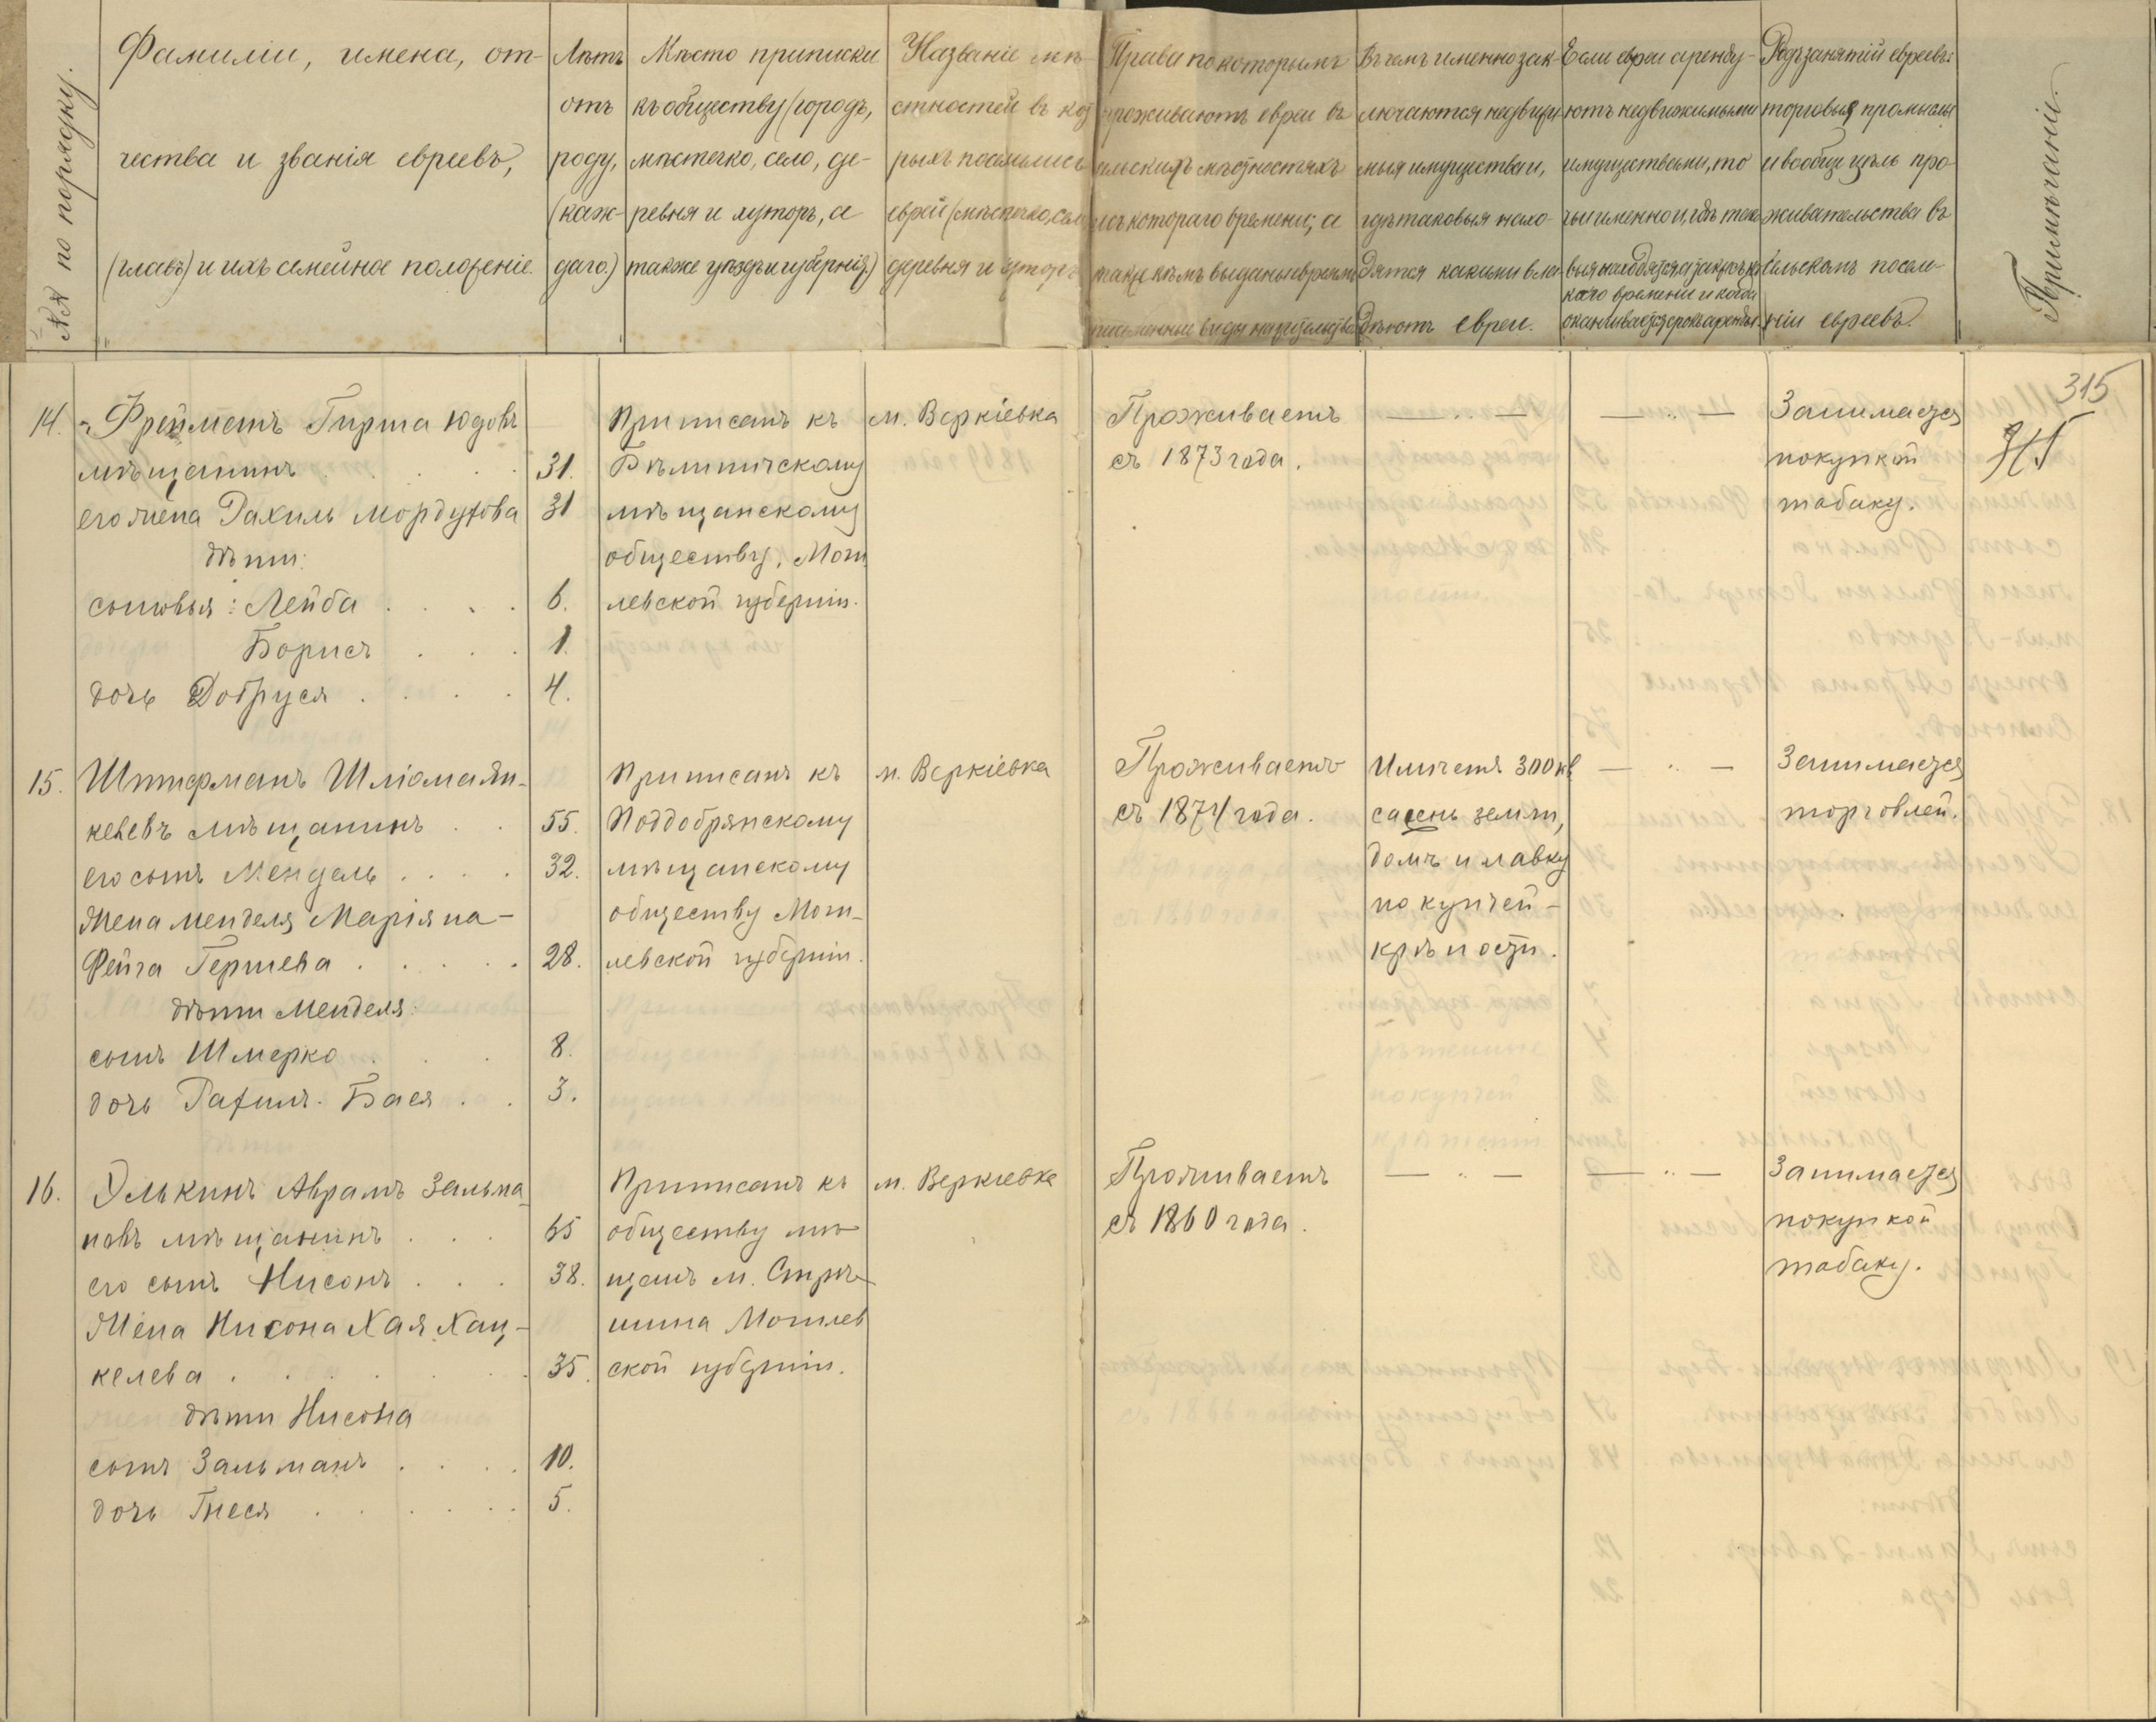 №№ по порядку.
Фамиліи, имена, от-
чества и званія евреевъ,
(главъ) и ихъ семейное положеніе.
Лѣтъ
отъ
роду,
(каж-
даго.)
Мѣсто приписки
къ обществу (городъ,
мѣстечко, село, де-
ревня и хуторъ, а
также уѣздъ и губернія.)
Названіе мѣ-
стностей въ кот
рыхъ поселились
евреи (мѣстечко, село,
деревня и хуторъ
Права по которымъ
проживаютъ евреи въ
сельскихъ мѣстностяхъ
и съ котораго времени; а
также кѣмъ выданы евреямъ
письменные виды на жительство
Въ чемъ именно зак-
лючаются недвижи
мыя имущества и,
гдѣ таковыя нахо-
дятся какими вла-
дѣютъ евреи.
Если евреи аренду-
ютъ недвижимыми
имуществами, то
чьи именно и, гдѣ тако
выя находятся, а также съ ка
каго времени и когда
оканчивается срокъ аренды.
Родъ занятій евреевъ:
торговыя промыслы
и вообще цѣль про-
живательства въ
сельскомъ поселе-
ніи евреевъ.
Примѣчаніе.
315
315
14. Фрейманъ Гирша Юдовъ
мѣщанинъ . . . 31.
его жена Рахиль Мордухова 31
дѣти:
сыновья: Лейба . . . . 6.
Борисъ . . . 1.
дочь Добруся . . . . 4.
Приписанъ къ
Бѣлиничскому
мѣщанскому
обществу, Моги
левской губерніи.
м. Веркіевка
Проживаетъ
съ 1873 года.
— .. —
— .. —
Занимается
покупкой
табаку.
15. Штифманъ Шліома Ян-
келевъ мѣщанинъ . . 55.
его сынъ Мендель . . . . 32.
Жена Менделя Маріяна-
Фейга Гершева . . . . . 28.
дѣти Менделя:
сынъ Шмерко . . . 8.
дочь Рахиль-Бася . . 3.
Приписанъ къ
Поддобрянскому
мѣщанскому
обществу Моги-
левской губерніи.
м. Веркіевка
Проживаетъ
съ 1874 года.
Имѣетъ 300 кв
сажень земли,
домъ и лавку
по купчей-
крѣпости.
— .. —
Занимается
торговлей.
16. Элькинъ Абрамъ Зальма
новъ мѣщанинъ . . . 65
его сынъ Нисонъ . . . 38.
Жена Нисона Хая Хац-
келева . . . . . . . 35.
дѣти Нисона
сынъ Зальманъ . . . . 10.
дочь Гнеся . . . . . . 5.
Приписанъ къ
обществу мѣ
щанъ м. Стрѣ-
шина Могилев
ской губерніи.
м. Веркіевка
Проживаетъ
съ 1860 года.
— .. —
— .. —
Занимается
покупкой
табаку.